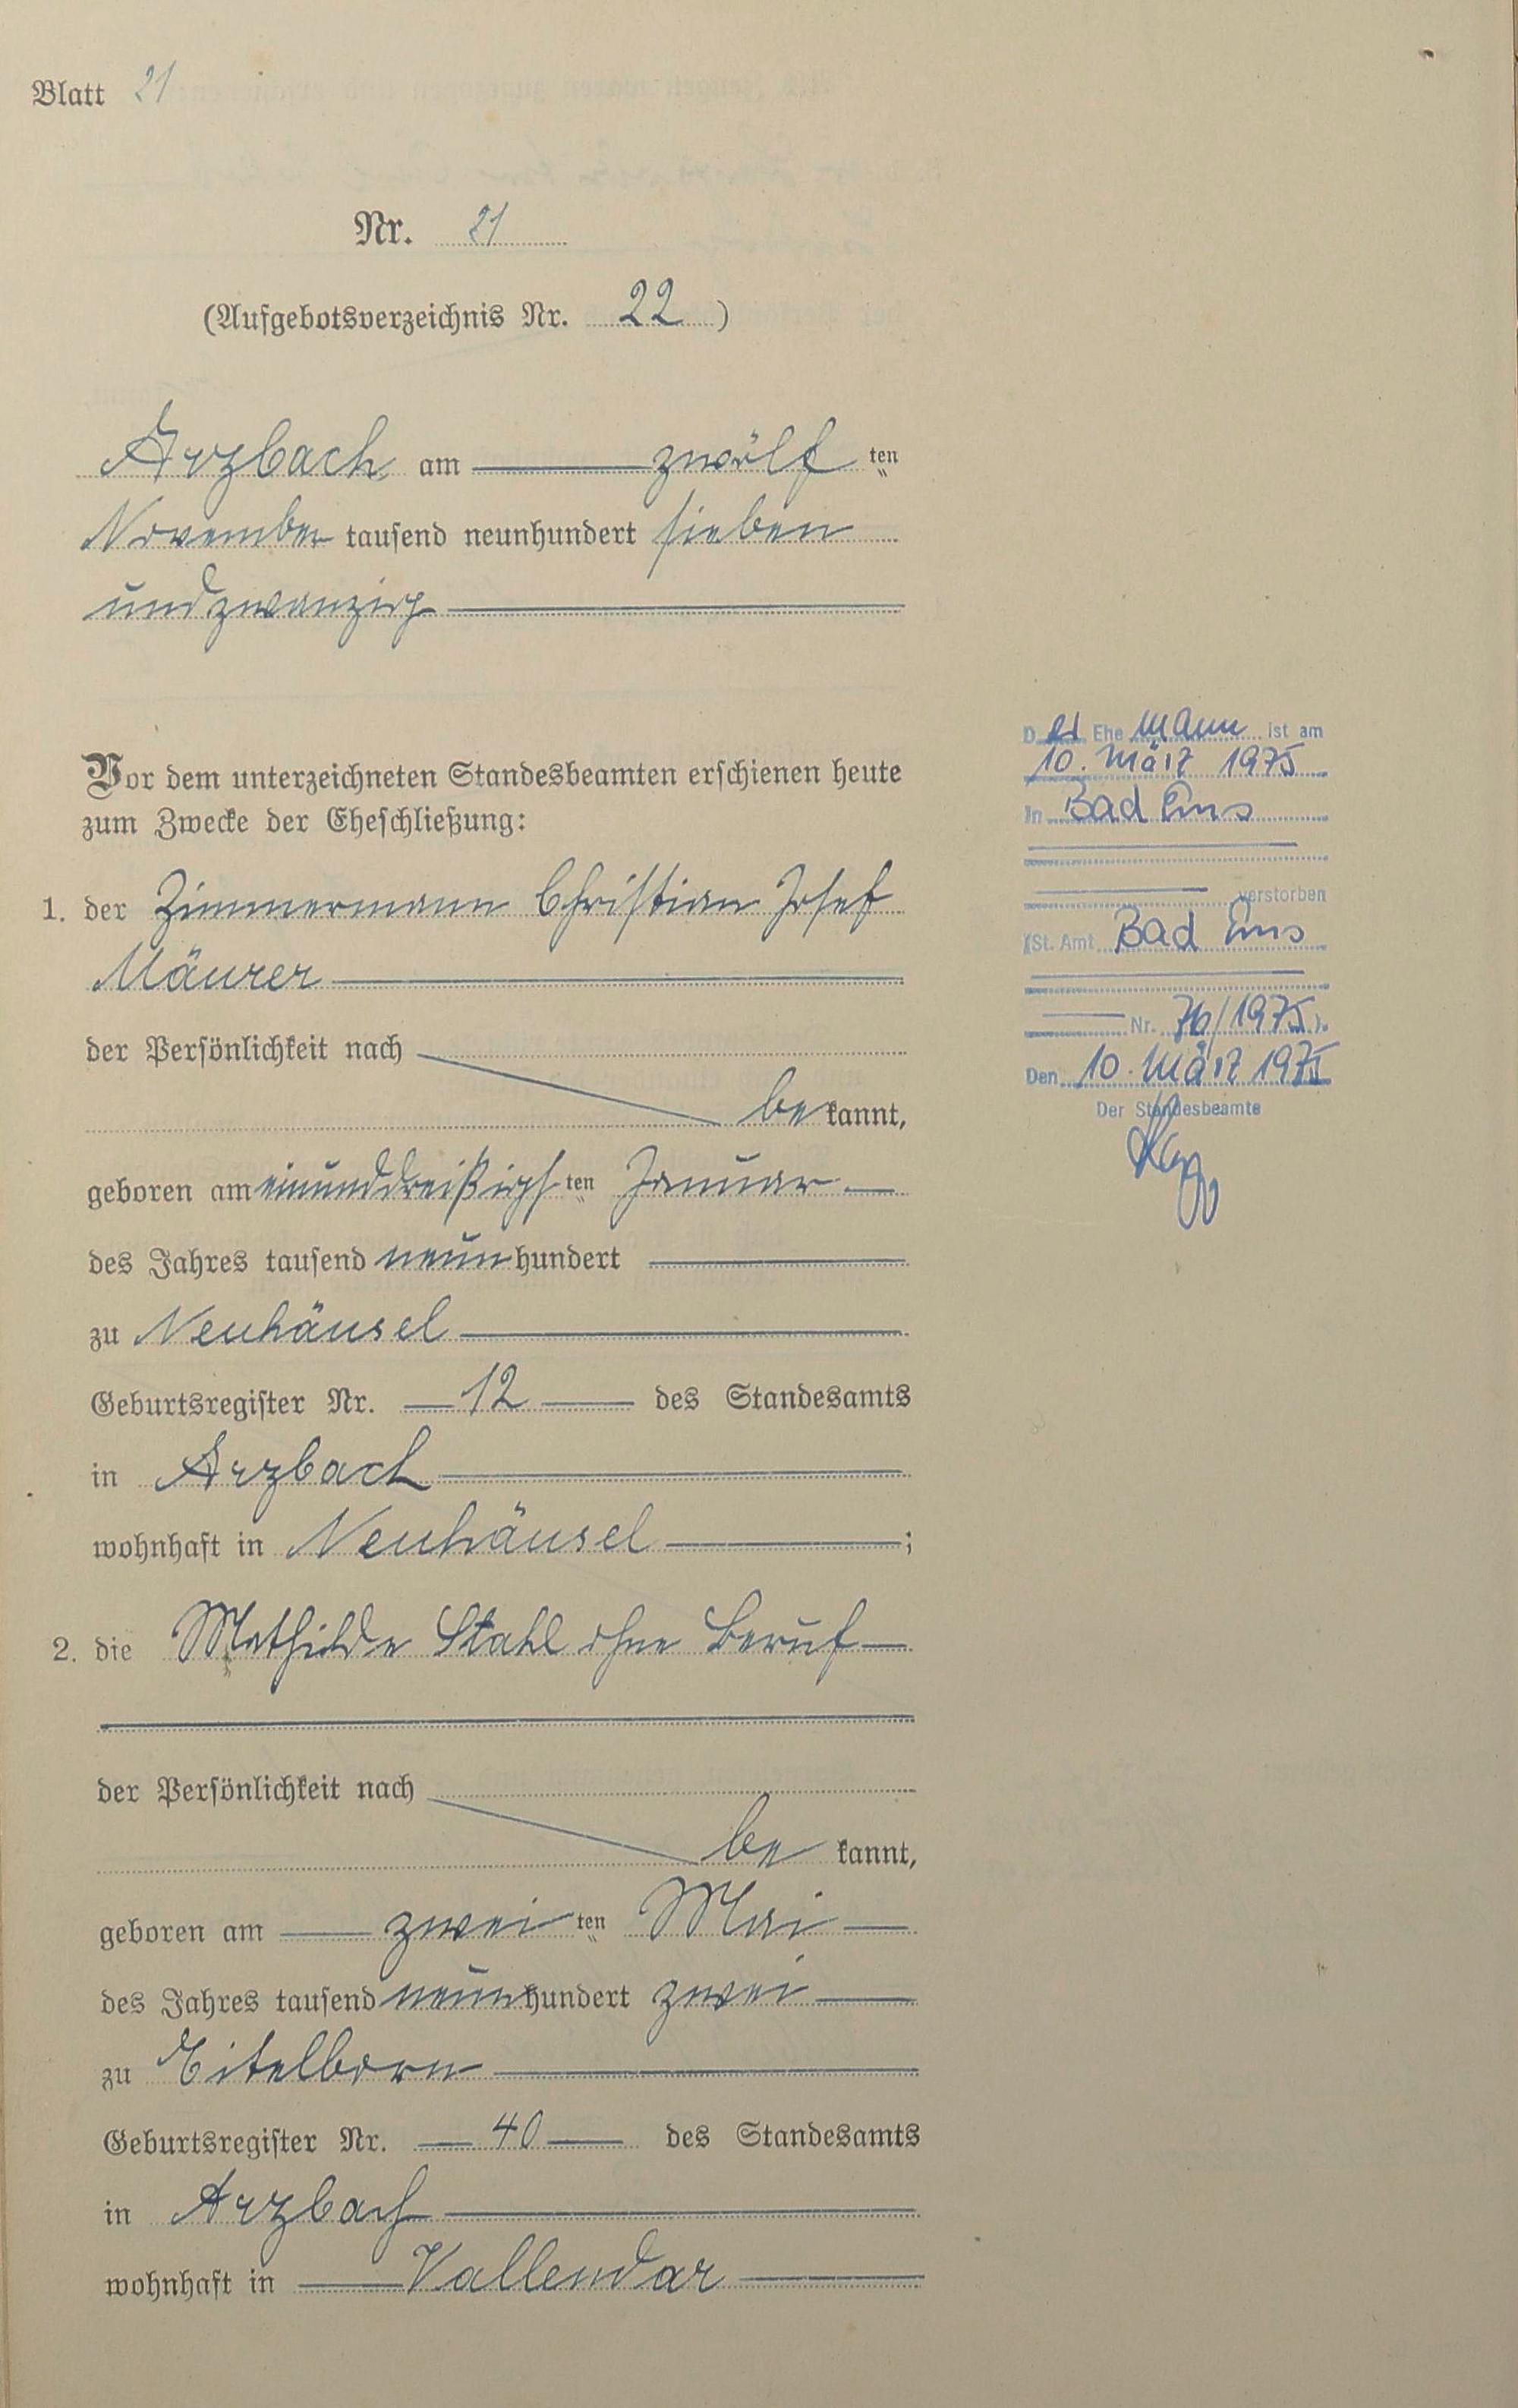 Blatt 21
Nr. 21
(Aufgebotsverzeichnis Nr. 22)
Arzbach am zwölf ten
November tausend neunhundert sieben
undzwanzig
Vor dem unterzeichneten Standesbeamten erschienen heute
zum Zwecke der Eheschließung:
1. der Zimmermann Christian Josef
Mäurer
der Persönlichkeit nach
be kannt,
geboren am einunddreißigsten Januar
des Jahres tausend neun hundert
zu Neuhäusel
Geburtsregister Nr. 12 des Standesamts
in Arzbach
wohnhaft in Neuhäusel ;
2. die Mathilde Stahl ohne Beruf
der Persönlichkeit nach
be kannt,
geboren am zwei ten Mai
des Jahres tausend neun hundert zwei
zu Eitelborn
Geburtsregister Nr. 40 des Standesamts
in Arzbach
wohnhaft in Vallendar
D er Ehe mann ist am
10. März 1975
in Bad Ems
verstorben
(St. Amt Bad Ems
Nr. 76/1975).
Den 10. März 1975
Der Standesbeamte